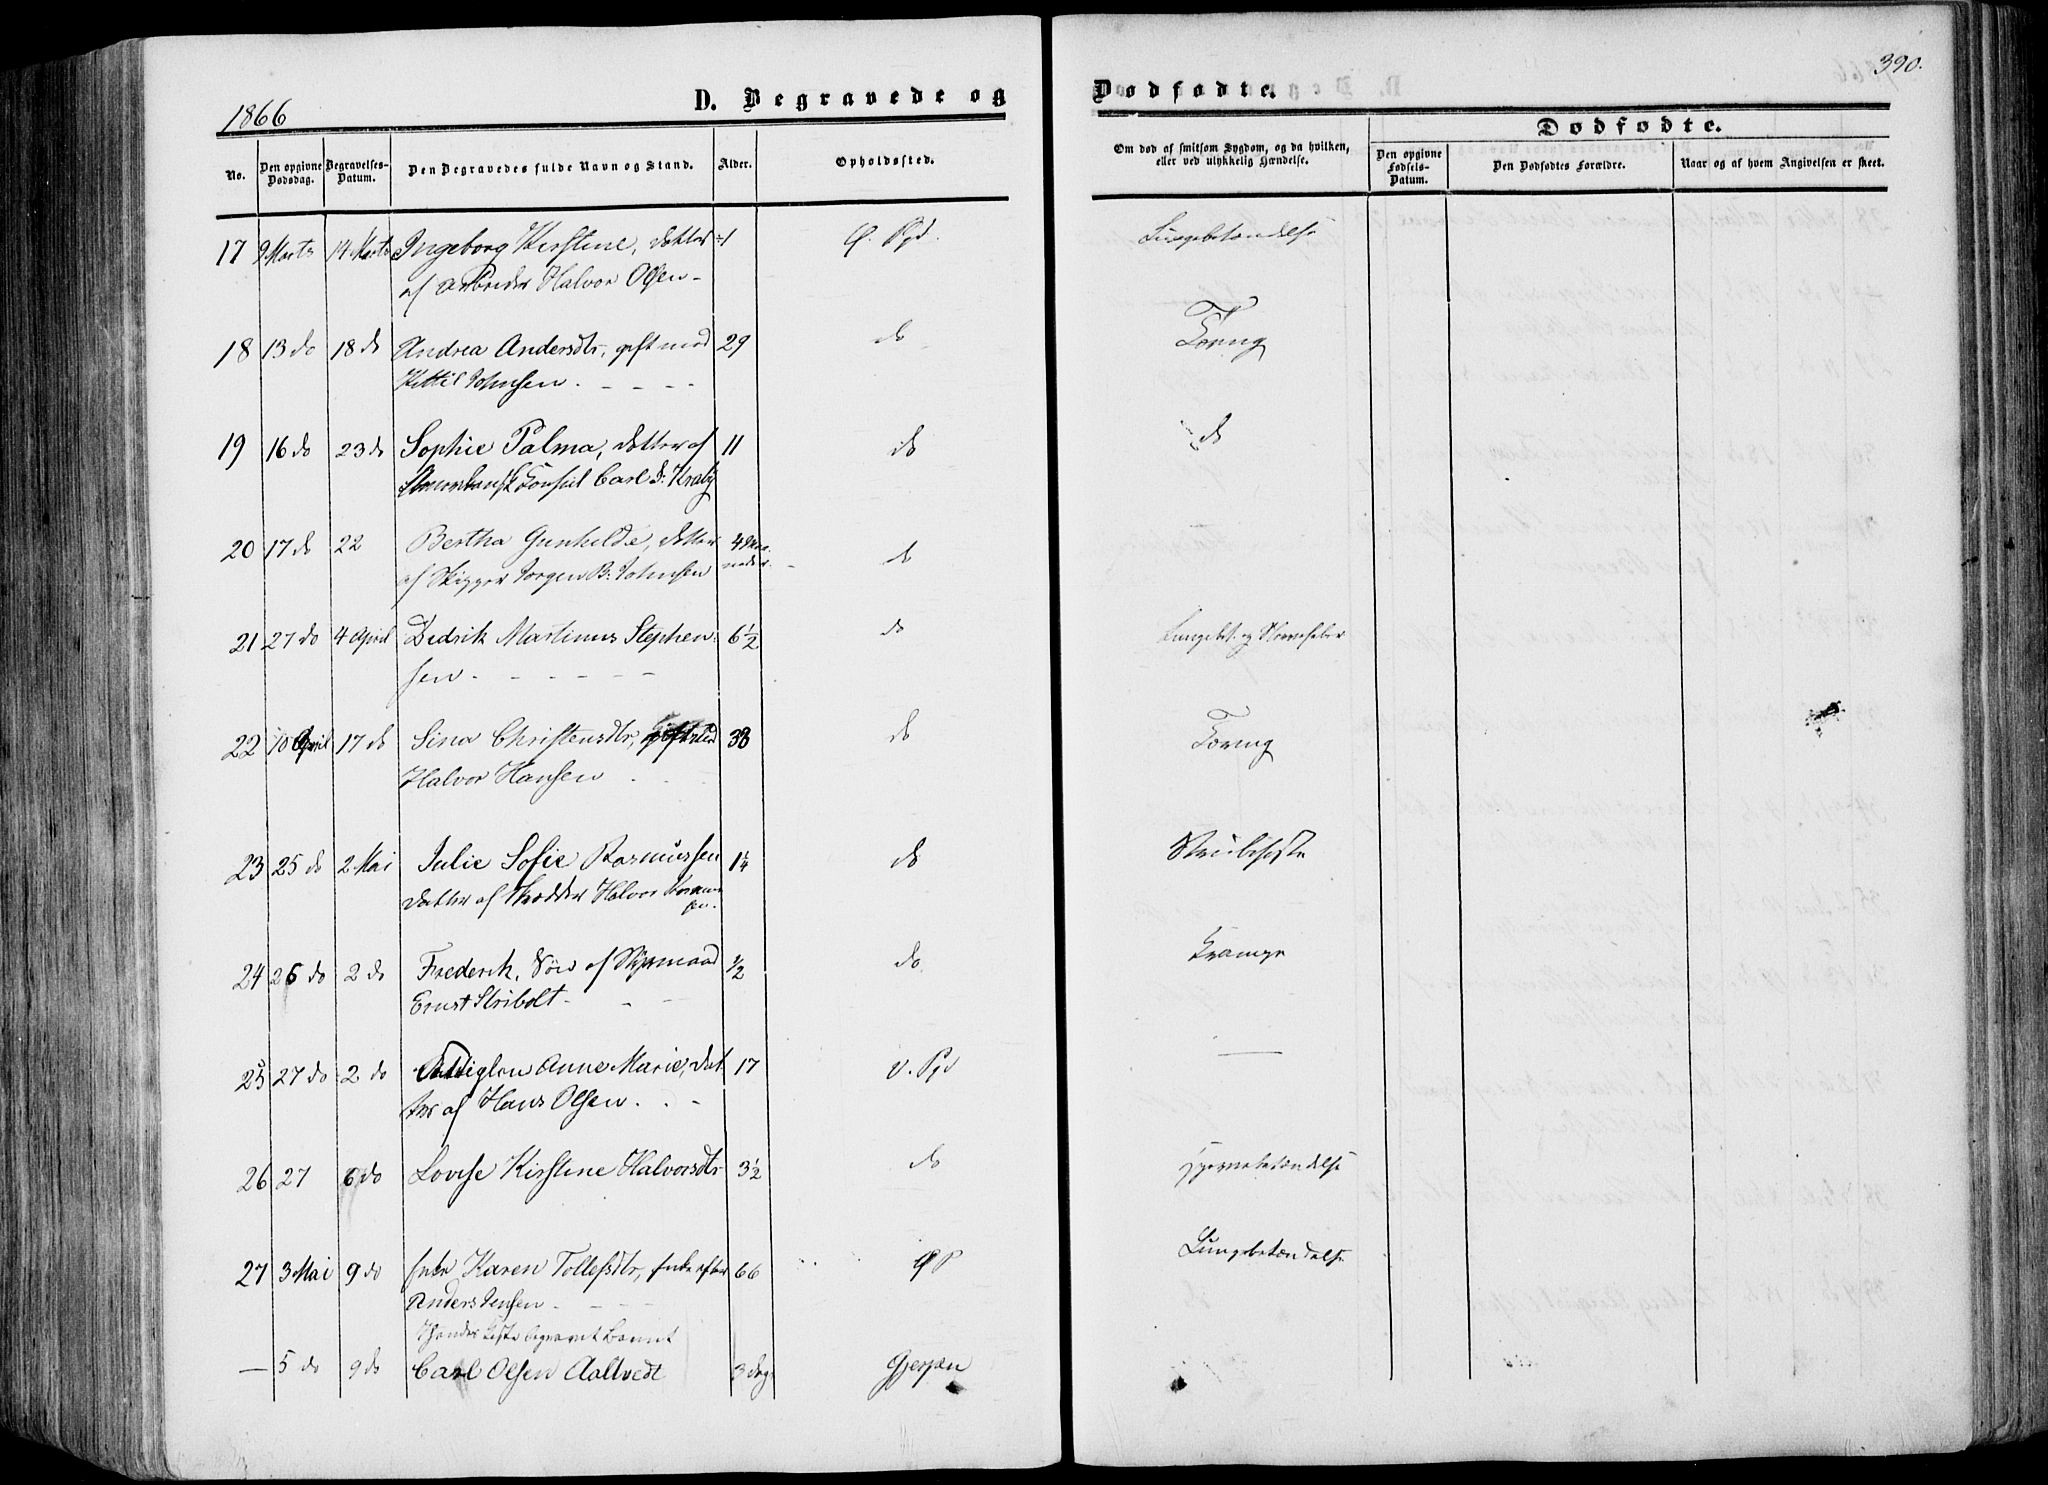 1866
D. Begravede og
Dødfødte.
390.
No.
Den opgivne Dødsdag.
Begravelses-Datum.
Den Begravedes fulde Navn og Stand.
Alder.
Opholdssted.
Om død af smitsom Sygdom, og da hvilken, eller ved ulykkelig Hændelse.
Dødfødte.
Den opgivne Fødsels-Datum.
Den Dødfødtes Forældre.
Naar og af hvem Angivelsen er skeet.
17 9 Marts 14 Marts Ingeborg Kirstine, datter 1 Ø. Pgd. Lungebetændelse
af Arbeider Halvor Olsen -
18 13 do 18 do Andrea Andersdtr, gift med 29 do Tæring
Kittil Johnsen. - - - -
19 16 do 23 do Sophie Palma, datter af 11 do do
Consul Carl D. Kraby
20 17 do 22 Bertha Gunhilde, datter 4 Maa-neder. do
af Skipper Jørgen B. Johnsen
21 27 do 4 April Didrik Martinus Stephen- 6½ do Lungebet. og
sen - - - - - -
22 10 April 17 do Sina Christensdtr, gift med 38 do Tæring
Halvor Hansen
23 25 do 2 Mai Julie Sofie Rasmussen 1¼ do Strubehoste
datter af Halvor Rasmus-
sen.
24 26 do 2 do Frederik, Søn af Styrmand ½ do Krampe
Ernst Stribolt - - -
25 27 do 2 do Anne Marie, dat 17 V. Pgd —
ter af Hans Olsen. . -
26 27 6 do Lovise Kirstine Halvorsdtr 3½ do Hjernebetændelse
27 3 Mai 9 do Enke Karen Tollefsdtr, Enke efter 66 ØP Lungebetændelse
Anders Jensen - - - -
begravet
— 5 do 9 do Carl Olsen Aaltvedt 3 Dage Gjerpen